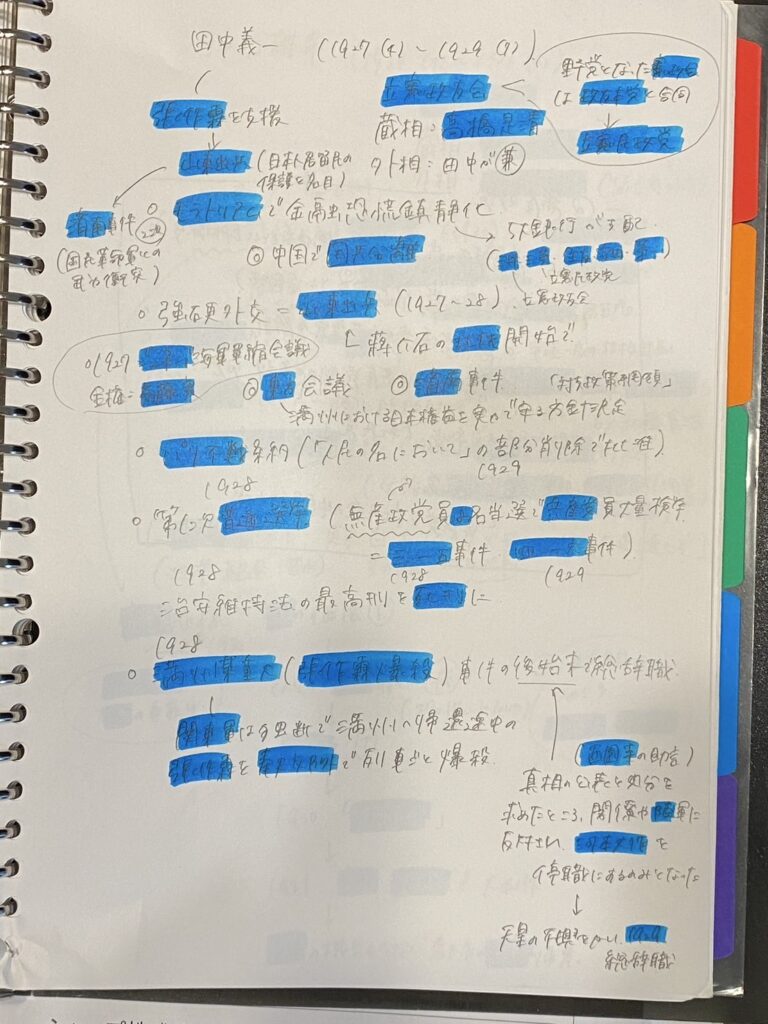 田中義一 (1927(4)〜1929(7))
野党となった憲政会
は政友本党と合同
↓
立憲民政党
立憲政友会
蔵相:高橋是清
外相:田中が兼
張作霖を支援
↓
山東出兵 (日本人居留民の
保護を名目)
済南事件
(国民革命軍との
武力衝突)
○モラトリアムで金融恐慌鎮静化
→5大銀行が支配
◎中国で国共分裂
立憲民政党
立憲政友会
○強硬外交=山東出兵 (1927〜28)
蔣介石の北伐開始で
○1927 海軍軍縮会議
全権:斎藤実
◎東方会議 ◎済南事件 「対支政策綱領」
満州における日本権益を実力で守る方針を決定
○パリ不戦条約(「人民の名において」の部分削除で批准)
1928 1929
○第1次普通選挙 (無産政党員8名当選で共産党員大量検挙
1928 =三・一五事件 四・一六事件)
1928 1929
治安維持法の最高刑を死刑に
1928
○満州某重大(張作霖爆殺)事件の後始末で総辞職
関東軍は独断で満州へ帰還途中の
張作霖を奉天郊外で列車ごと爆殺
(西園寺の助言)
真相の公表と処分を
求めたところ、閣僚や陸軍に
反対され、河本大作を
停職にするのみとなった
↓
天皇の不興をかい、1929
総辞職